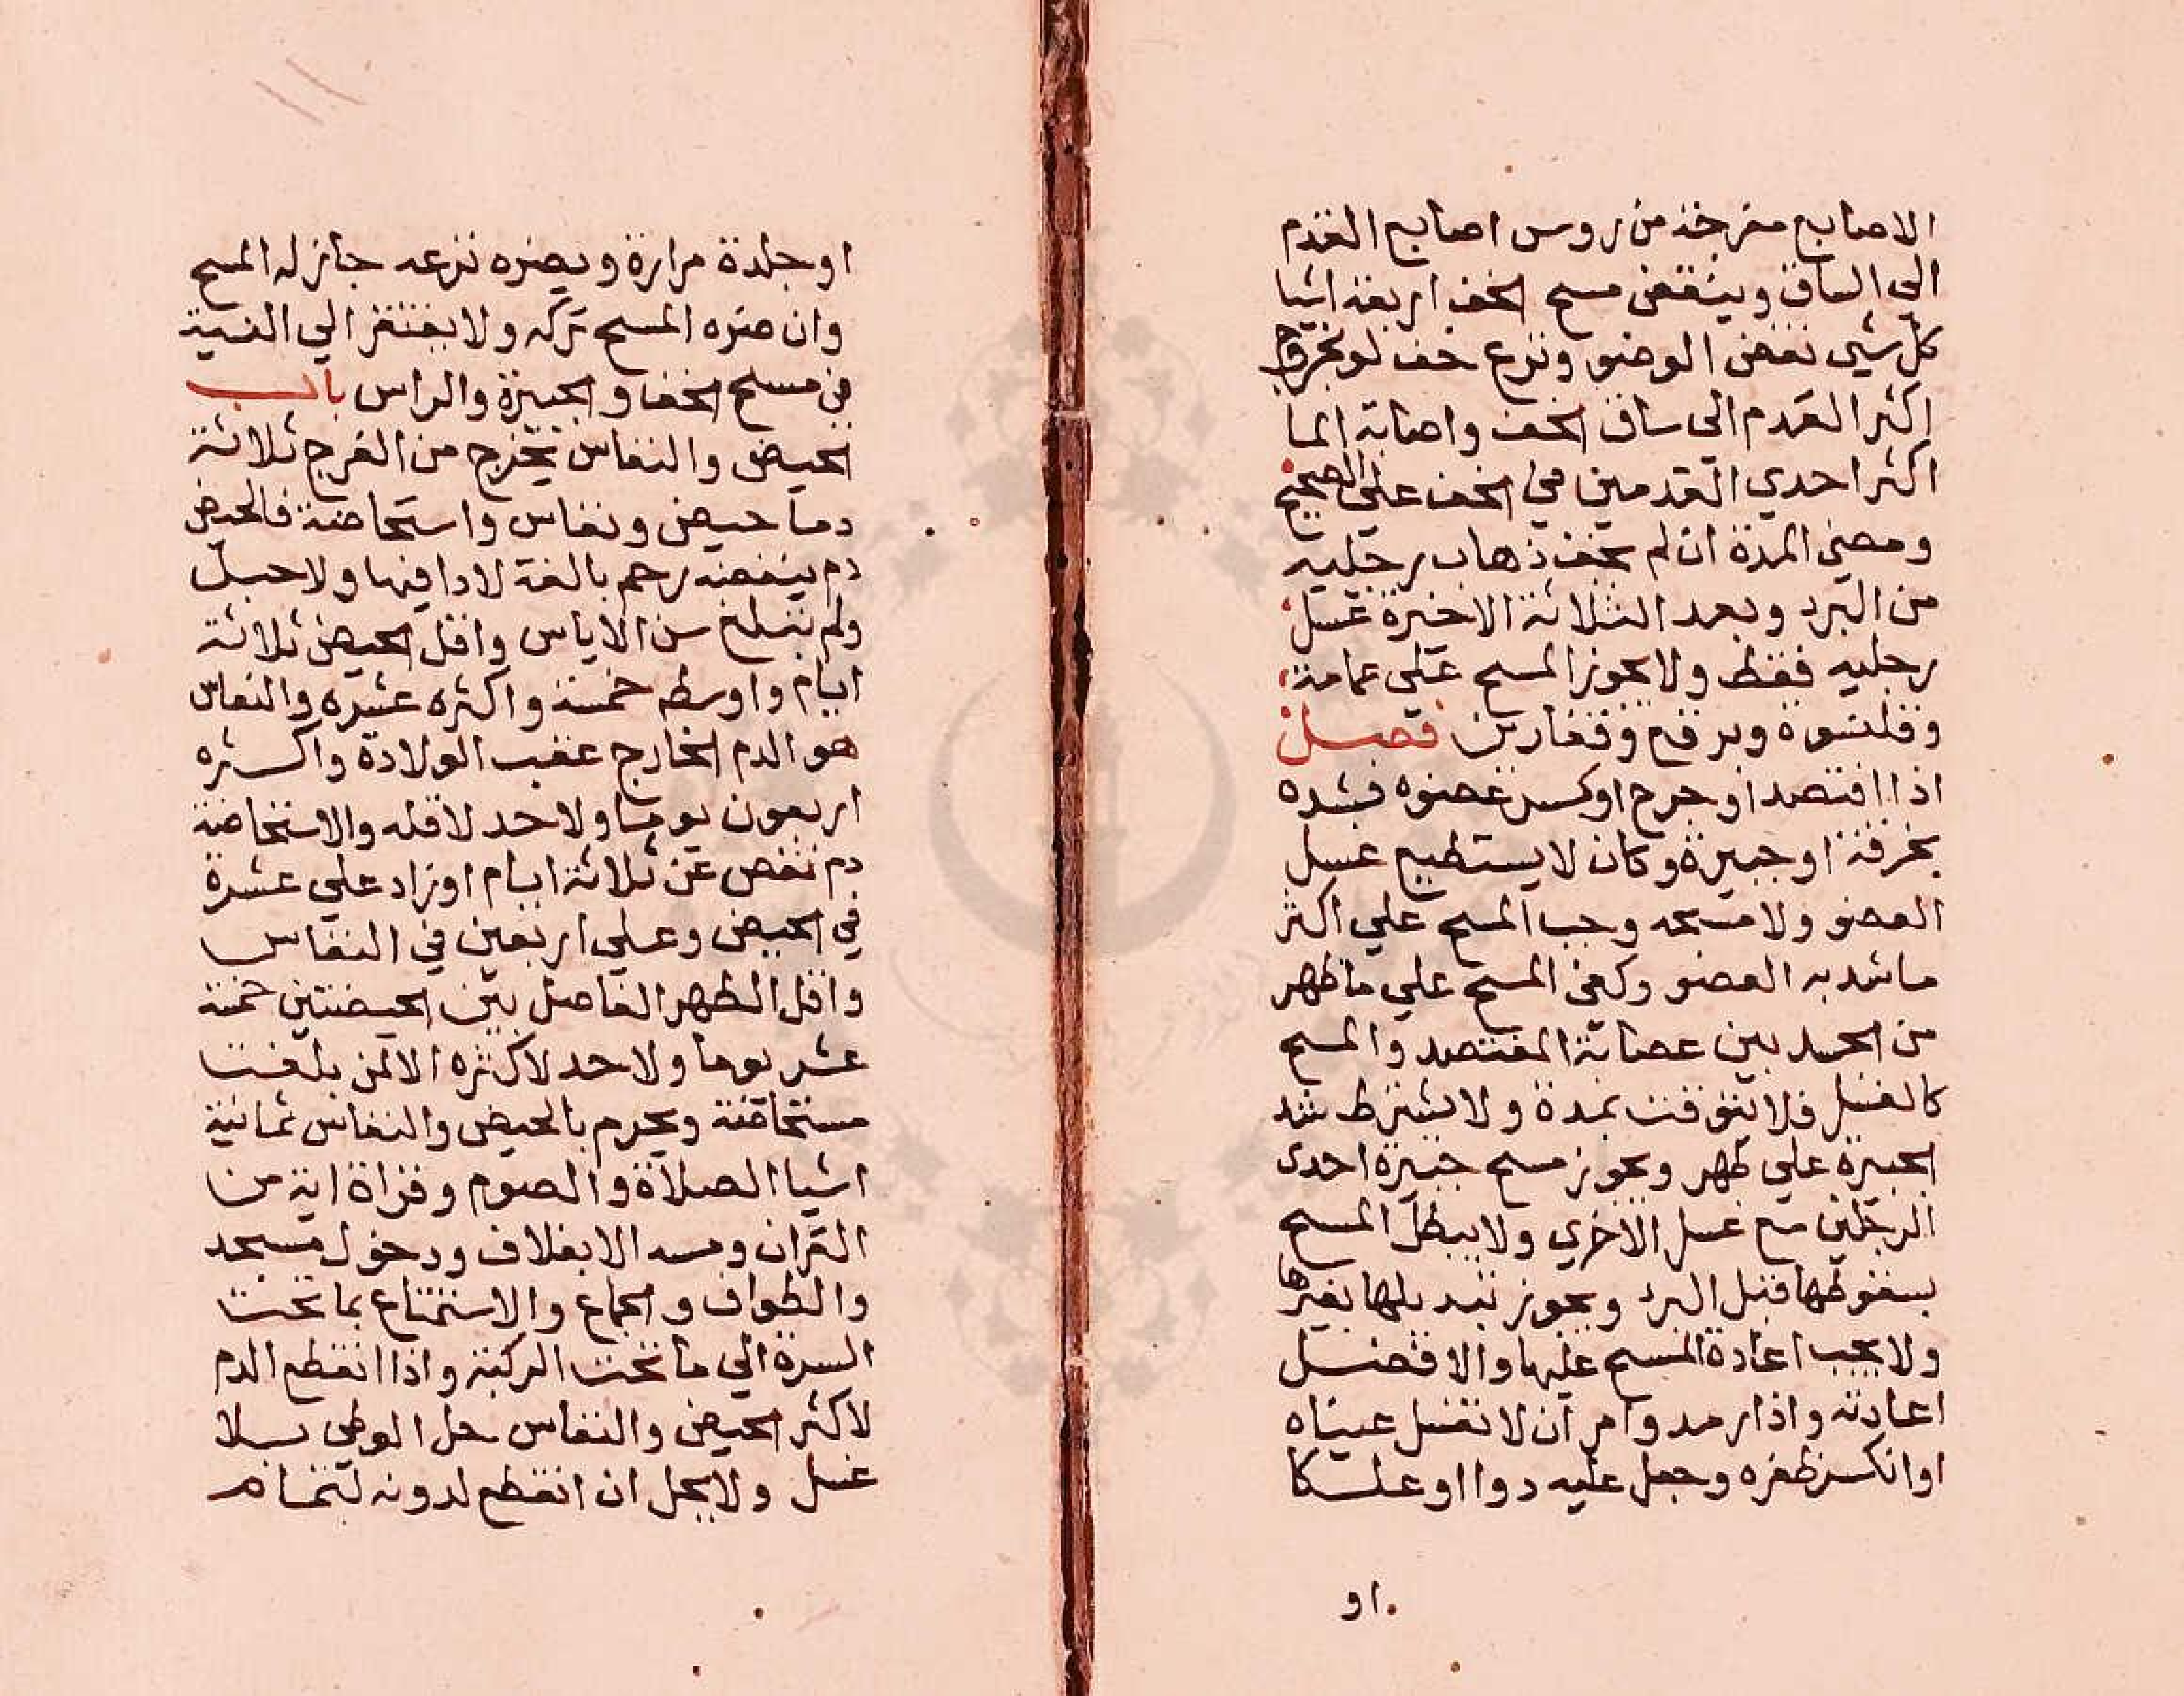 الاصابع مفرجة من روس اصابع القدم
الي الساق وينقض مسح الخف اربعة اشيا
كل شي نقض الوضو ونزع خف لو بخروج
اكثر القدم الي ساق الخف واصابة الما
اكثر احدي القدمين في الخف علي الصحيح
ومضي المدة ان لم يخف ذهاب رجليه
من البرد وبعد الثلاثة الاخيرة غسل
رجليه فقط ولا يجوز المسح علي عمامة
وقلنسوة وبرقع وقفازين فصل
اذا افتصد او جرح او كسر عضوه فشده
بخرقة او جبيرة وكان لا يستطيع غسل
العضو ولا مسحه وجب المسح علي اكثر
ما شد به العضو وكفي المسح علي ما ظهر
من الجسد بين عصابة المفتصد والمسح
كالغسل فلا يتوقت بمدة ولا يشترط شد
الجبيرة علي طهر ويجوز مسح جبيرة احدى
الرجلين مع غسل الاخري ولا يبطل المسح
بسقوطها قبل البرء ويجوز تبديلها بغيرها
ولا يجب اعادة المسح عليها والافضل
اعادته واذا رمد وامر ان لا تغسل عيناه
او انكسر ظفره وجعل عليه دوا او علكا
او
او جلدة مرارة ويضره نزعه جاز له المسح
وان ضره المسح تركه ولا يفتقر الي النية
في مسح الخف والجبيرة والراس باب
الحيض والنفاس يخرج من الفرج ثلاثة
دما حيض ونفاس واستحاضة فالحيض
دم ينفضه رحم بالغة لا دا فيها ولا حبل
ولم تبلغ سن الاياس واقل الحيض ثلاثة
ايام واوسطه خمسة واكثره عشره والنفاس
هو الدم الخارج عقب الولادة واكثره
اربعون يوما ولا حد لاقله والاستحاضة
دم نقص عن ثلاثة ايام او زاد علي عشرة
في الحيض وعلي اربعين في النفاس
واقل الطهر الفاصل بين الحيضتين خمسة
عشر يوما ولا حد لاكثره الا لمن بلغت
مستحاضة ويحرم بالحيض والنفاس ثمانية
اشيا الصلاة والصوم وقراة اية من
القران ومسه الا بغلاف ودخول مسجد
والطواف والجماع والاستمتاع بما تحت
السرة الي ما تحت الركبة واذا انقطع الدم
لاكثر الحيض والنفاس حل الوطي بلا
غسل ولا يحل ان انقطع لدونه لتمام